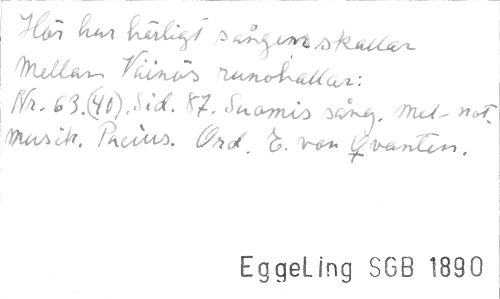 Hör hur härligt sången skallar
Mellan Väinös runohallar:
Nr. 63. (40). Sid. 87. Suomis sång. Med not.
musik. Pacius. Ord. E. von Qvanten.
EggeLing SGB 1890